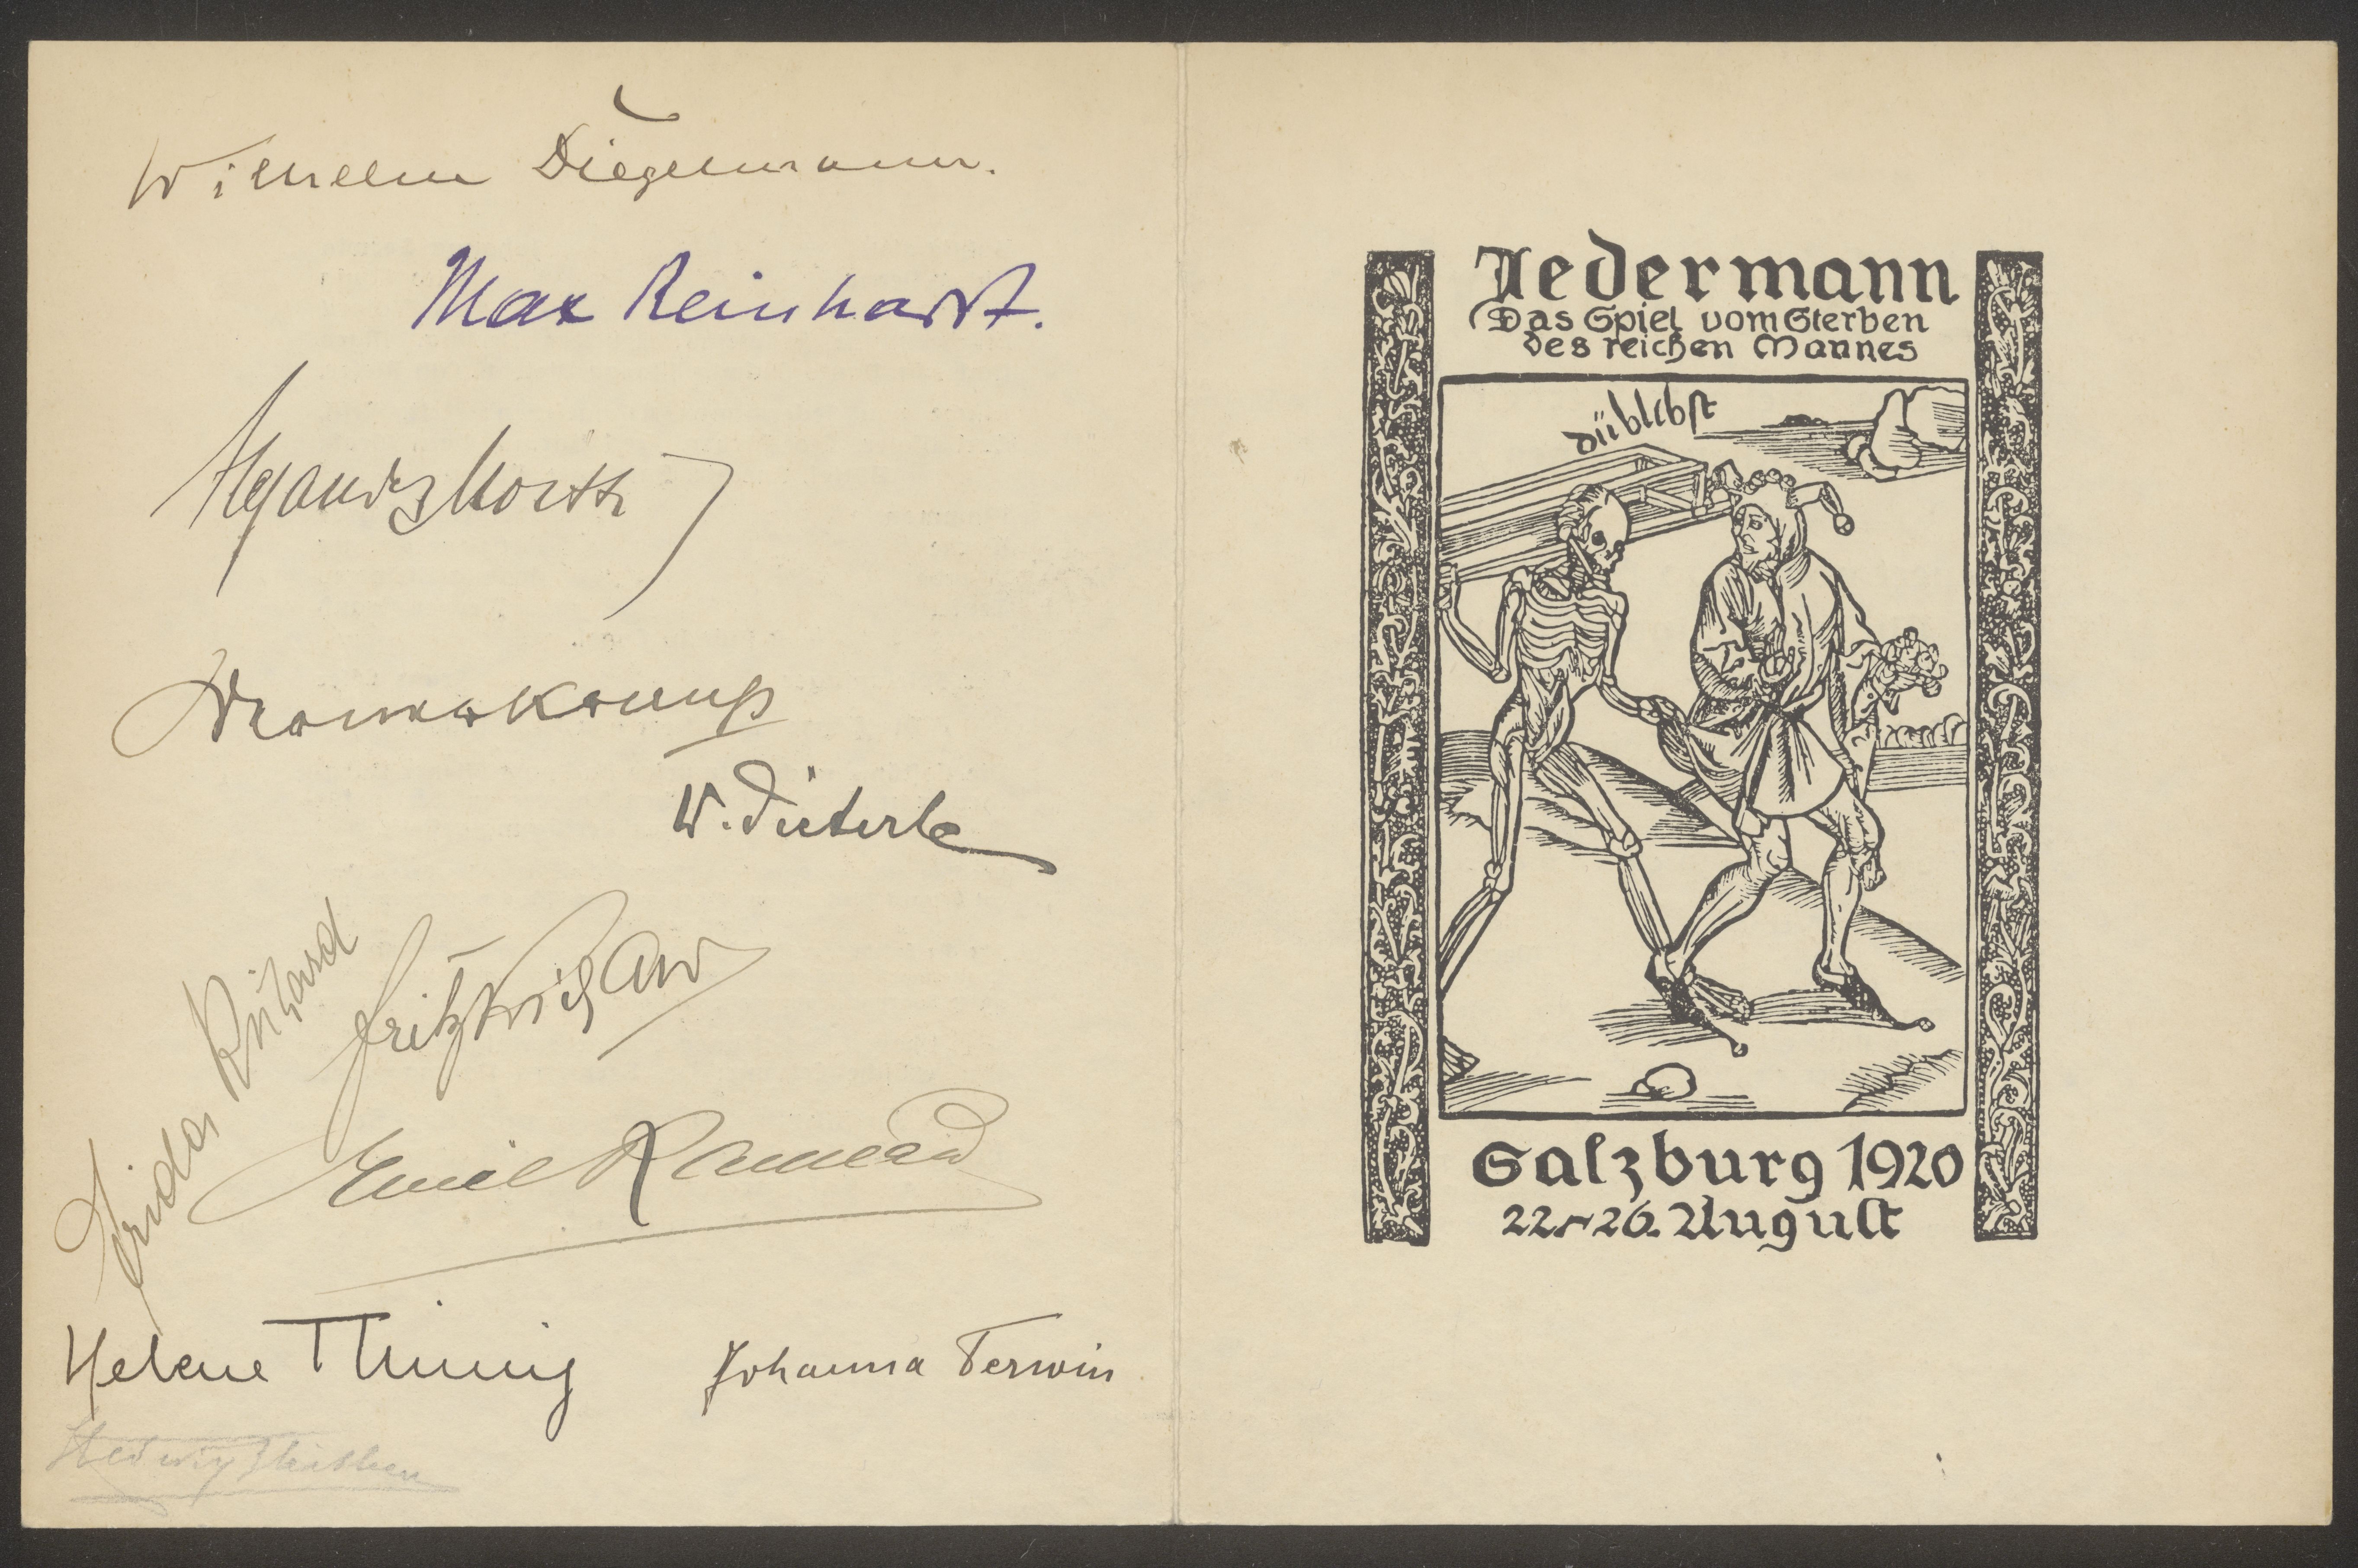 Wilhelm Diegelmann.
Max Reinhardt.
Alexander Moissi
Werner Krauß
W. Dieterle
Frida Richard
Fritz Richard
Emil Rameau
Helene Thimig
Johanna Terwin
Hedwig Bleibtreu
Jedermann
Das Spiel vom Sterben
des reichen Mannes
dü blibst
Salzburg 1920
22.-26. August